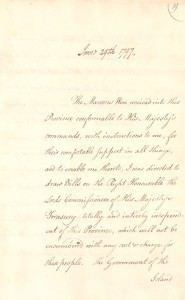 June 29th 1797.
The Maroons then arrived into this
Province conformable to His Majesty's
commands, with instructions to me, for
their comfortable support in all things,
and to enable me thereto, I was directed to
draw Bills on the Right Honourable the
Lords Commissioners of His Majesty's
Treasury, totally and entirely independ-
ent of this Province, which will not be
incumbered with any cost or charge for
this people. The Government of the
Island